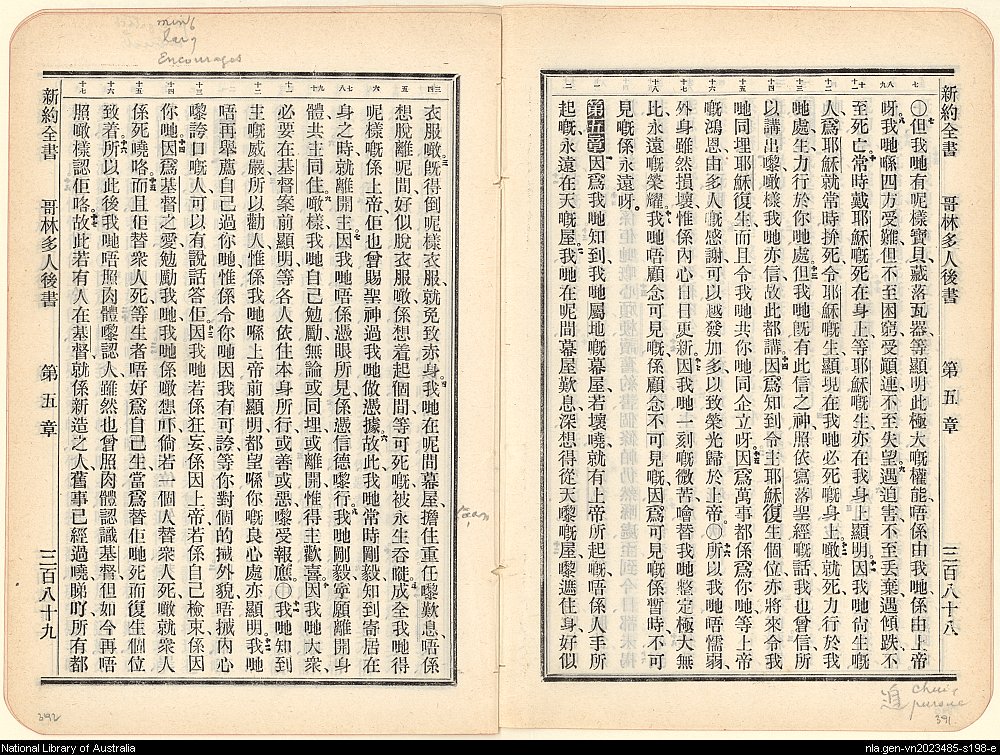 新約全書 哥林多人後書 第五章 三百八十八
○但我哋有呢樣寶貝、藏落瓦器、等顯明此極大嘅權能、唔係由我哋、係由上帝
呀、我哋喺四方受難、但不至困窮、受顚連、不至失望、遇迫害、不至丟棄、遇傾跌、不
至死亡、常時戴耶穌嘅死在身上、等耶穌嘅生、亦在我身上顯明、因我哋尙生嘅
人、爲耶穌就常時拚死、令耶穌嘅生顯現在我哋必死嘅身上、噉就死力行於我
哋處、生力行於你哋處、但我哋旣有此信之神、照依寫落聖經嘅話、我也曾信、所
以講出嚟、噉樣我哋亦信、故此都講、因爲知到令主耶穌復生個位、亦將來令我
哋同埋耶穌復生、而且令我哋共你哋同企立呀、因爲萬事都係爲你哋、等上帝
嘅鴻恩、由多人嘅感謝、可以越發加多、以致榮光歸於上帝、○所以我哋唔懦弱、
外身雖然損壞、惟係內心日日更新、因我哋一刻嘅微苦、噲替我哋整定極大無
比永遠嘅榮耀、我哋唔顧念可見嘅、係顧念不可見嘅、因爲可見嘅係暫時、不可
見嘅係永遠呀。
第五章 因爲我哋知到我哋屬地嘅幕屋、若壞嘵、就有上帝所起嘅、唔係人手所
起嘅、永遠在天嘅屋、我哋在呢間幕屋歎息、深想得從天嚟嘅屋、嚟遮住身好似
追 chui pursue
391
ming
Encourages
衣服噉、旣得倒呢樣衣服、就免致赤身、我哋在呢間幕屋、擔住重任嚟歎息、唔係
想脫離呢間、好似脫衣服噉、係想着起個間、等可死嘅、被永生吞𡁶、成全我哋得
呢樣嘅、係上帝、佢也曾賜聖神過我哋做憑據、故此我哋常時剛毅、知到寄居在
身之時、就離開主、因我哋唔係憑眼所見、係憑信德嚟行、我哋剛毅、寧願離開身
體、共主同住、噉樣我哋自己勉勵、無論或同埋、或離開、惟得主歡喜、因我哋大衆
必要在基督案前顯明、等各人依住本身所行、或善或惡、嚟受報應、○我哋知到
主嘅威嚴、所以勸人、惟係我哋喺上帝前顯明、都望喺你嘅良心處亦顯明、我哋
唔再舉薦自己過你哋、惟係令你哋因我有可誇、等你對個的械外貌唔械內心
嚟誇口嘅人、可以有說話答佢、因我哋若係狂妄、係因上帝、若係自己檢束、係因
你哋、因爲基督之愛勉勵我哋、我哋係噉想吓、倘若一個人替衆人死、噉就衆人
係死嘵咯、而且佢替衆人死、等生者唔好爲自己生、當爲替佢哋死而復生個位
致着、所以此後我哋唔照肉體嚟認人、雖然也曾照肉體認識基督、但如今再唔
照噉樣認佢咯、故此若有人在基督、就係新造之人、舊事已經過嘵、睇吖、所有都
新約全書 哥林多人後書 第五章 三百八十九
392
National Library of Australia
nla.gen-vn2023485-s198-e